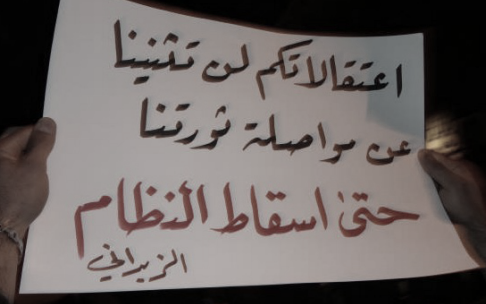 اعتقالاتكم لن تثنينا
عن مواصلة ثورتنا
حتى اسقاط النظام
الزبداني